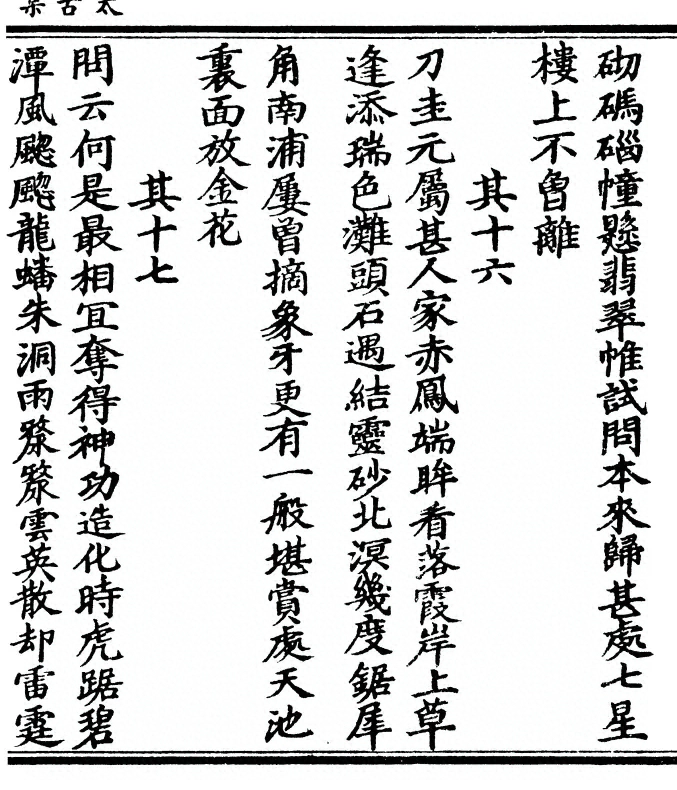 太古集
砌碼碯幢懸翡翠帷試問本來歸甚處七星
樓上不曾離
其十六
刀圭元屬甚人家赤鳳端眸看落霞岸上草
逢添瑞色灘頭石遇結靈砂北溟幾度鋸犀
角南浦屢曾摘象牙更有一般堪賞處天池
裏面放金花
其十七
問云何是最相冝奪得神功造化時虎踞碧
潭風颼颼龍蟠朱洞雨𩆍𩆍雲英散却雷霆